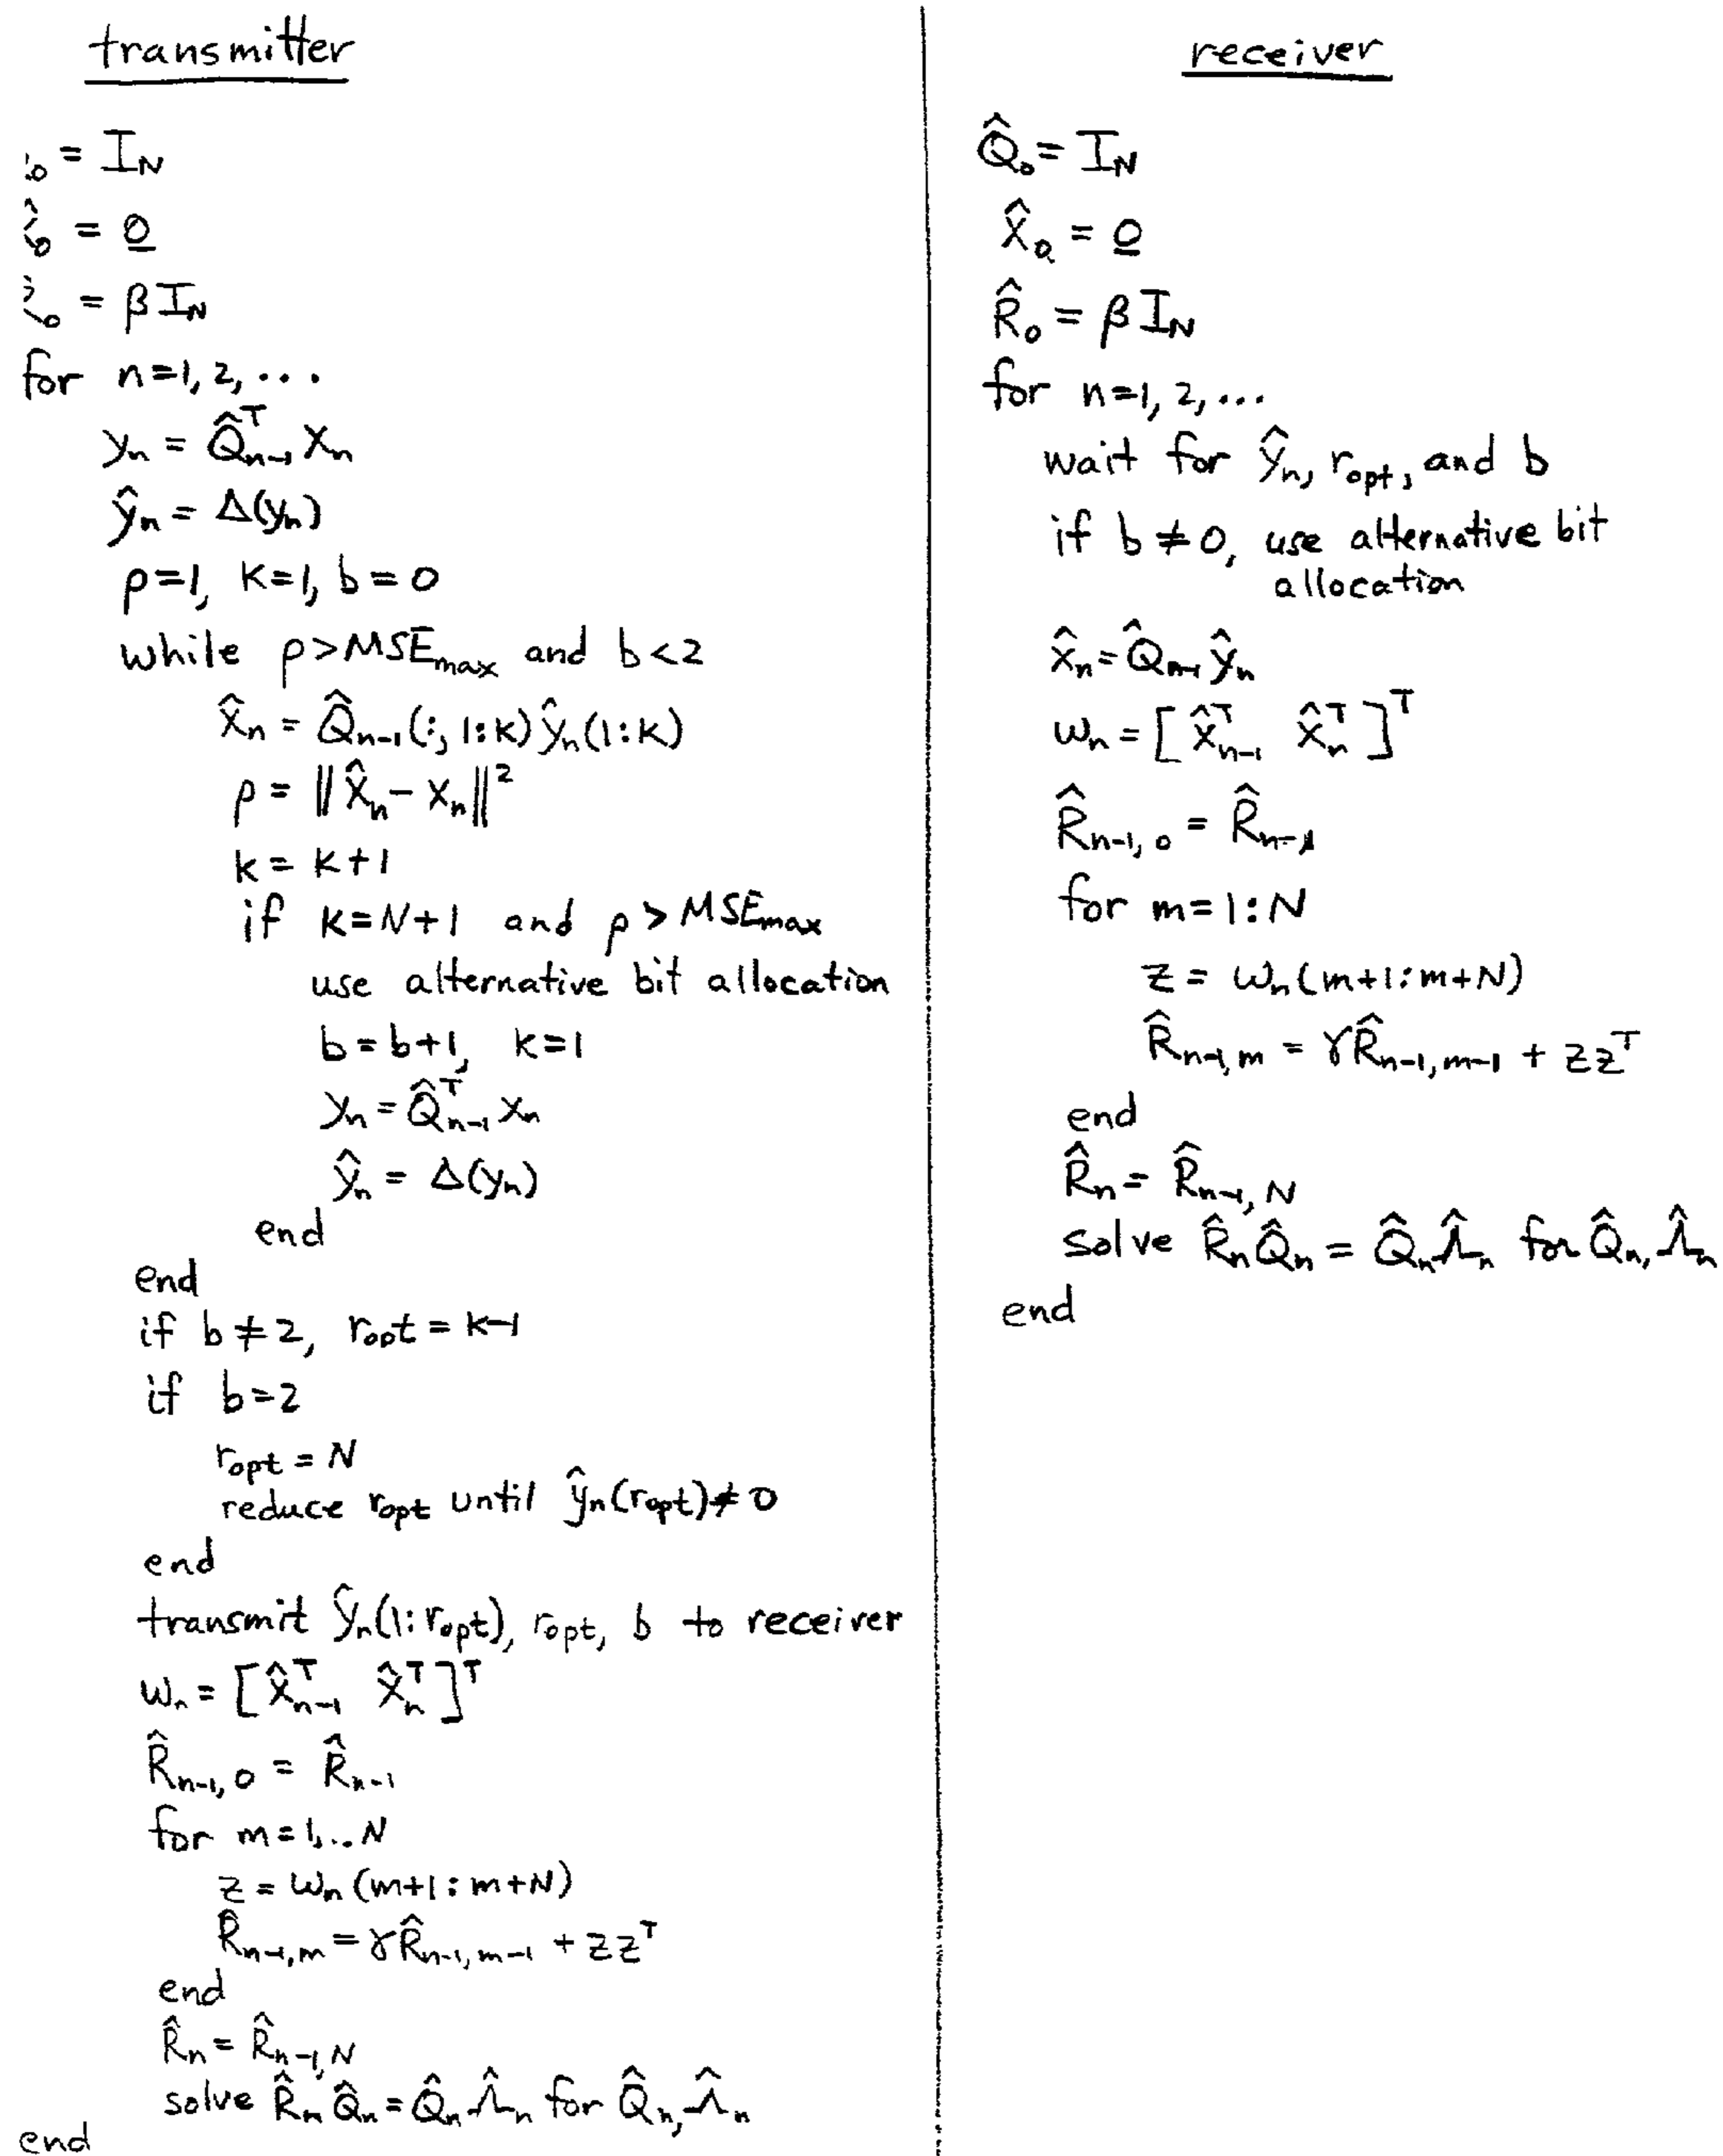 transmitter
₀ = I_N
̂₀ = 0
₀ = β I_N
for n=1, 2, ...
y_n = Q̂ᵀ_{n-1} x_n
ŷ_n = Δ(y_n)
ρ=1, k=1, b=0
while ρ>MSE_max and b<2
x̂_n = Q̂_{n-1}(:, 1:k) ŷ_n(1:k)
ρ = ‖x̂_n - x_n‖²
k = k+1
if k=N+1 and ρ > MSE_max
use alternative bit allocation
b=b+1, k=1
y_n = Q̂ᵀ_{n-1} x_n
ŷ_n = Δ(y_n)
end
end
if b≠2, r_opt = k-1
if b=2
r_opt = N
reduce r_opt until ŷ_n(r_opt)≠0
end
transmit ŷ_n(1:r_opt), r_opt, b to receiver
w_n = [x̂ᵀ_{n-1} x̂ᵀ_n]ᵀ
R̂_{n-1,0} = R̂_{n-1}
for m=1,..N
z = w_n(m+1:m+N)
R̂_{n-1,m} = γR̂_{n-1,m-1} + zzᵀ
end
R̂_n = R̂_{n-1,N}
solve R̂_n Q̂_n = Q̂_n Λ̂_n for Q̂_n, Λ̂_n
end
receiver
Q̂₀ = I_N
x̂₀ = 0
R̂₀ = β I_N
for n=1, 2, ...
wait for ŷ_n, r_opt, and b
if b≠0, use alternative bit
allocation
x̂_n = Q̂_{n-1} ŷ_n
w_n = [x̂ᵀ_{n-1} x̂ᵀ_n]ᵀ
R̂_{n-1,0} = R̂_{n-1}
for m=1:N
z = w_n(m+1:m+N)
R̂_{n-1,m} = γR̂_{n-1,m-1} + zzᵀ
end
R̂_n = R̂_{n-1,N}
solve R̂_n Q̂_n = Q̂_n Λ̂_n for Q̂_n, Λ̂_n
end